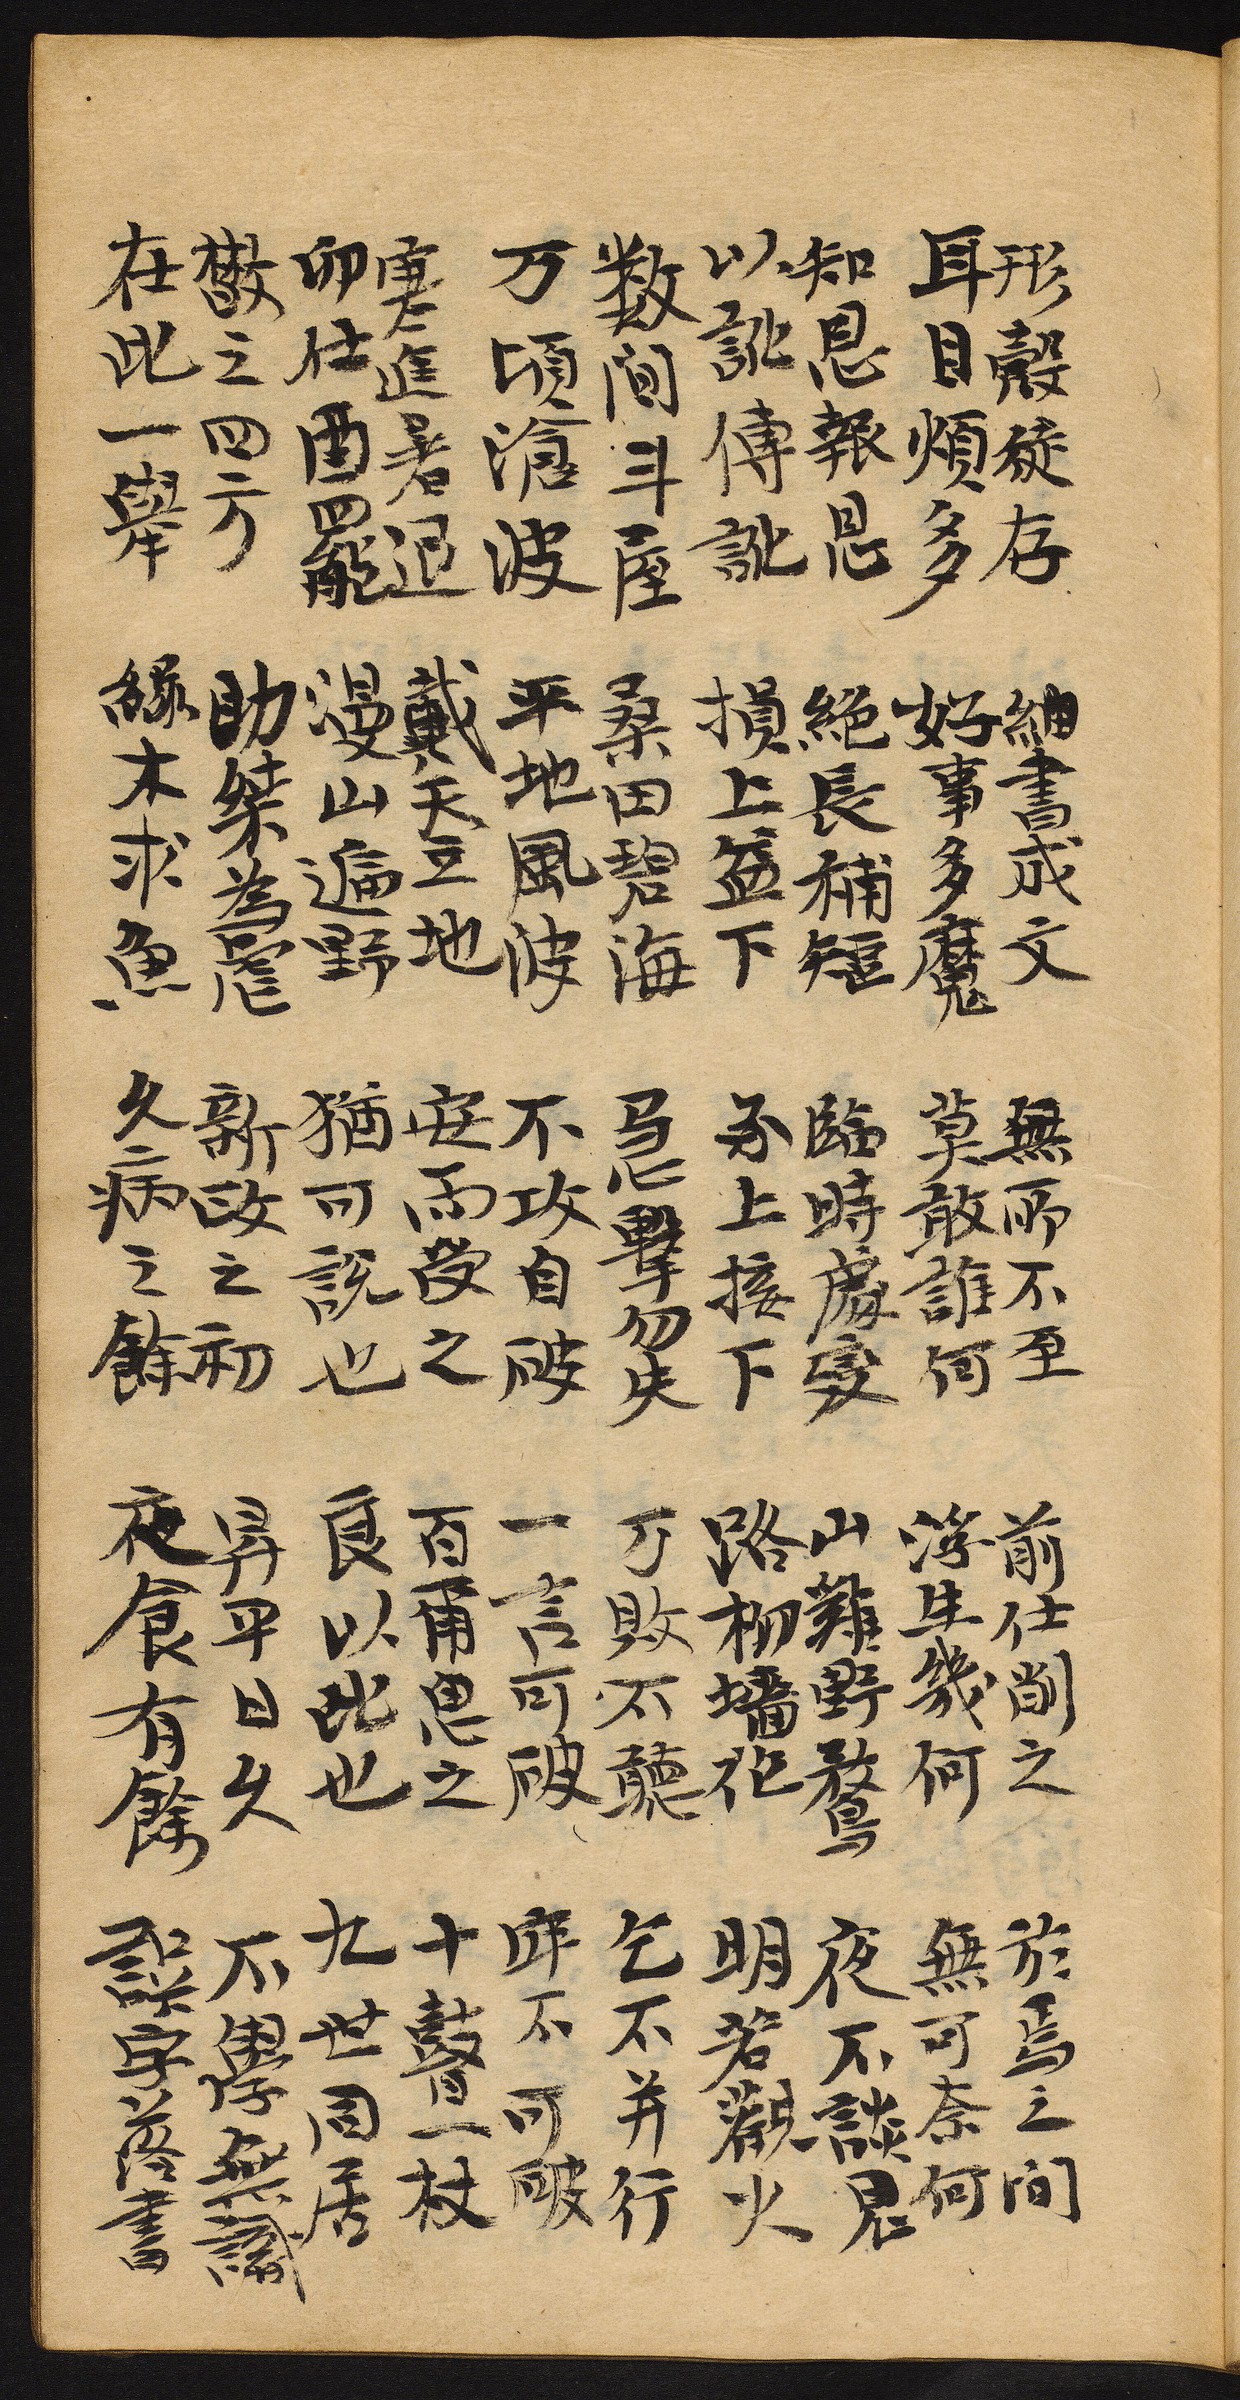 形殼徒存 紬書成文 無所不至 前仕削之 於焉之間
耳目煩多 好事多魔 莫敢誰何 浮生幾何 無可奈何
知恩報恩 絶長補短 臨時處變 山雞野鶩 夜不談鬼
以訛傳訛 損上益下 承上接下 路柳墻花 明若觀火
数间斗屋 桑田碧海 急擊勿失 万敗不聽 乞不并行
万頃滄波 平地風波 不攻自破 一言可破 牢不可破
寒進暑退 戴天立地 安而受之 百爾思之 十瞽一杖
卯仕酉罷 漫山遍野 猶可説也 良以此也 九世同居
之四方 助桀為虐 新政之初 昇平日久 不學無識
在此一舉 緣木求魚 久病之餘 夜食有餘 誤字落書